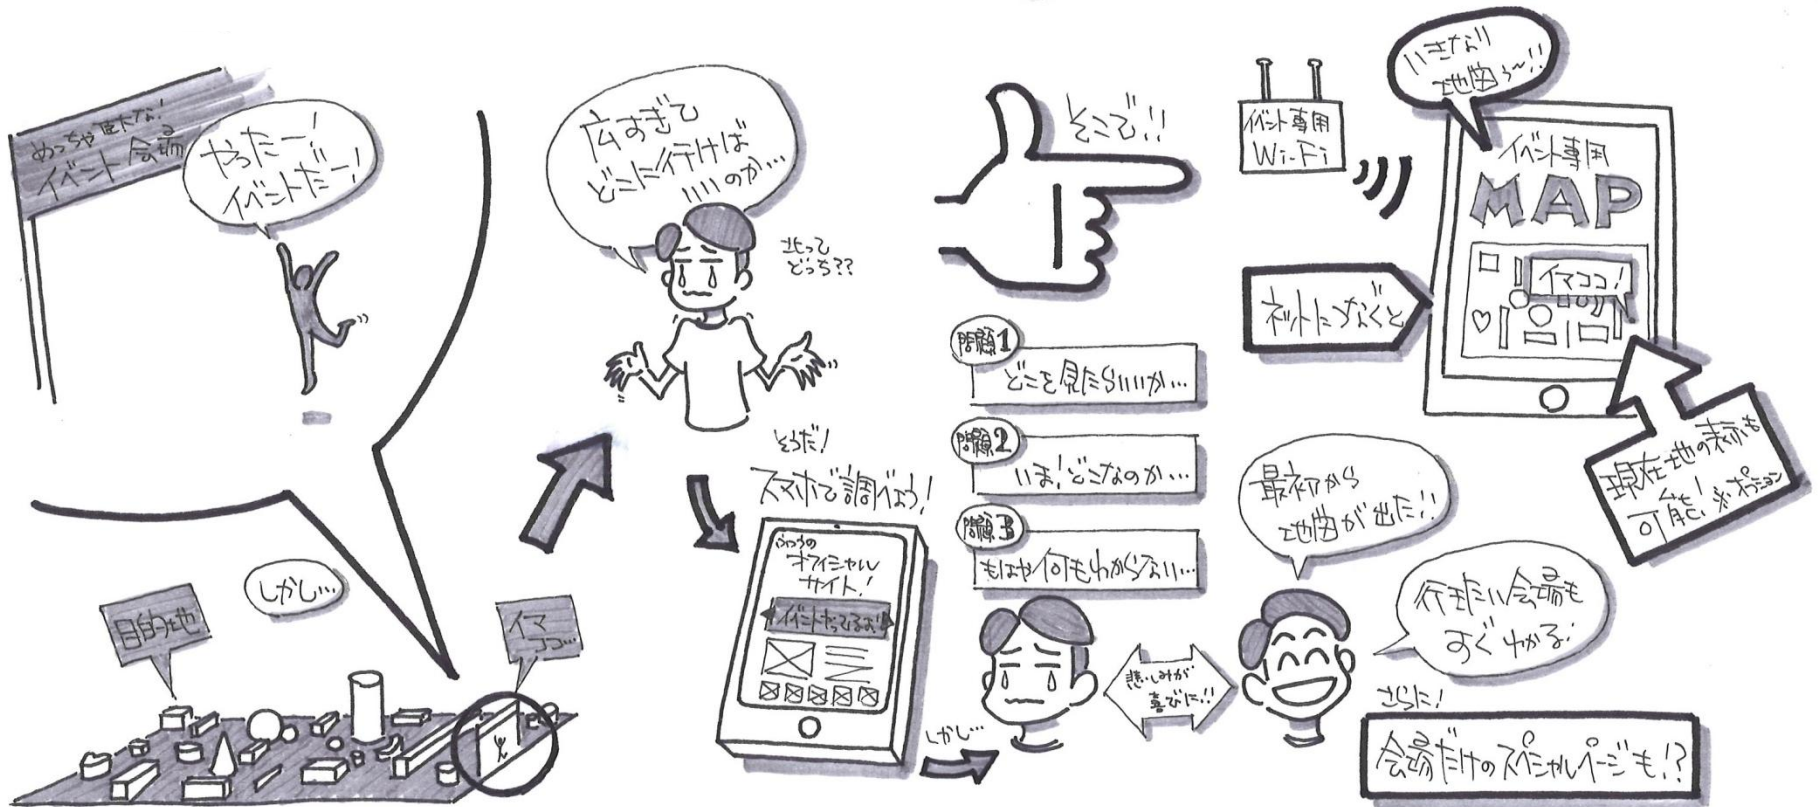 めっちゃ巨大な!
イベント会場
やったー!
イベントだー!
しかし…
目的地
イマ
ココ…
広すぎて
どこに行けば
いいのか…
北って
どっち??
そうだ!
スマホで調べよう!
ふつうの
オフィシャル
サイト!
イベントやってるよ!
しかし…
そこで!!
問題1
どこを見たらいいか…
問題2
いま!どこなのか…
問題3
もはや何もわからない…
悲しみが
喜びに!!
イベント専用
Wi-Fi
ネットにつなぐと
いきなり
地図ぅ〜!!
イベント専用
MAP
イマココ!
現在地の表示も
可能!※オプション
最初から
地図が出た!!
行きたい会場も
すぐわかる!
さらに!
会場だけのスペシャルページも!?